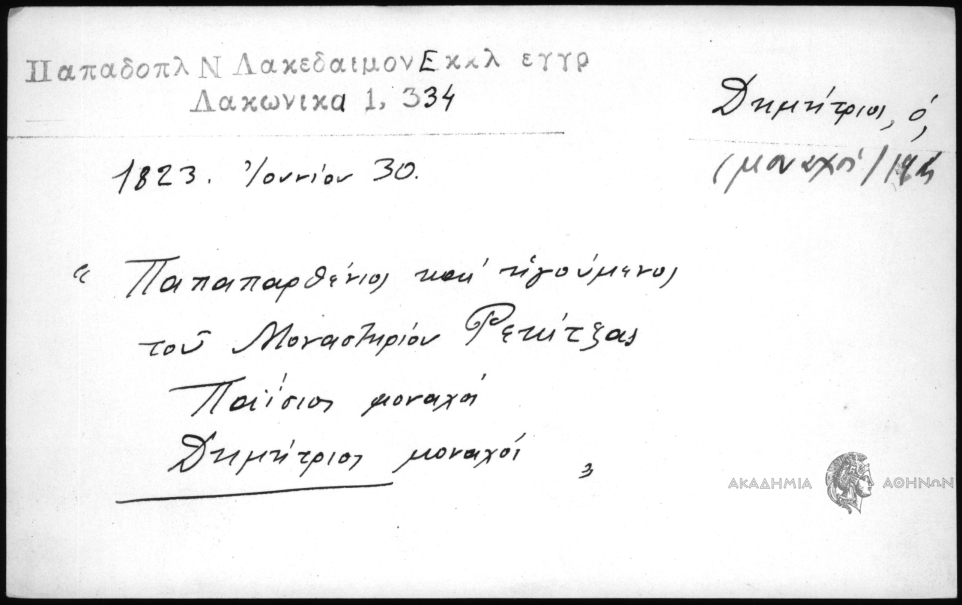 Παπαδοπλ Ν Λακεδαιμον Εκκλ εγγρ
Λακωνικα 1, 334
Δημήτριος, ὁ,
(μοναχός)
1823. Ἰουνίου 30.
“ Παπαπαρθένιος καὶ ἡγούμενος
τοῦ Μοναστηρίου Ρεκίτζας
Παΐσιος μοναχός
Δημήτριος μοναχός „
ΑΚΑΔΗΜΙΑ ΑΘΗΝΩΝ